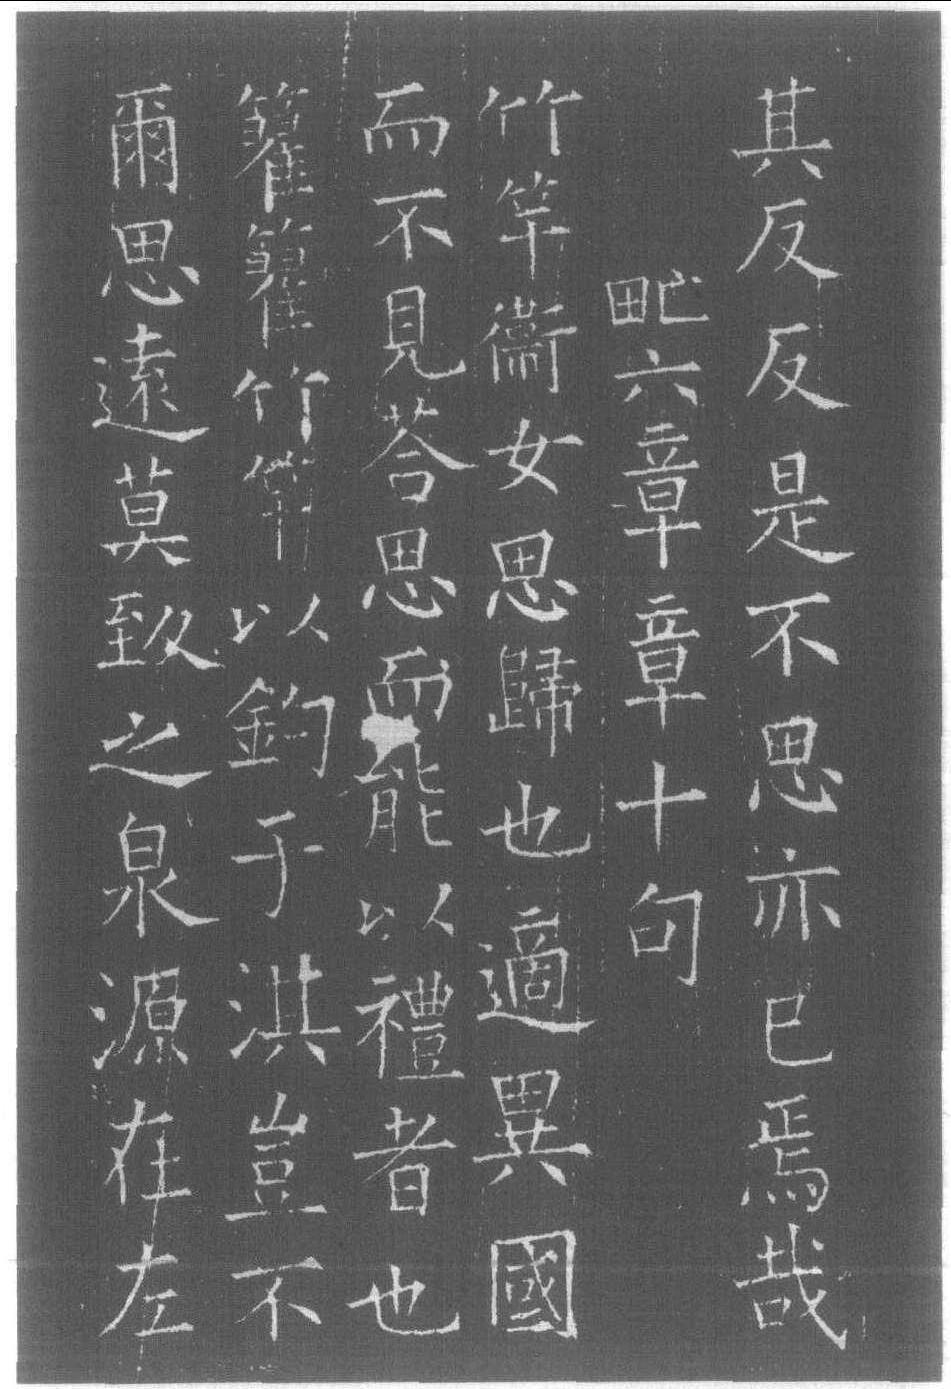 其反反是不思亦已焉哉
甿六章章十句
竹竿衛女思歸也適異國
而不見荅思而能以禮者也
籊籊竹竿以釣于淇豈不
爾思遠莫致之泉源在左